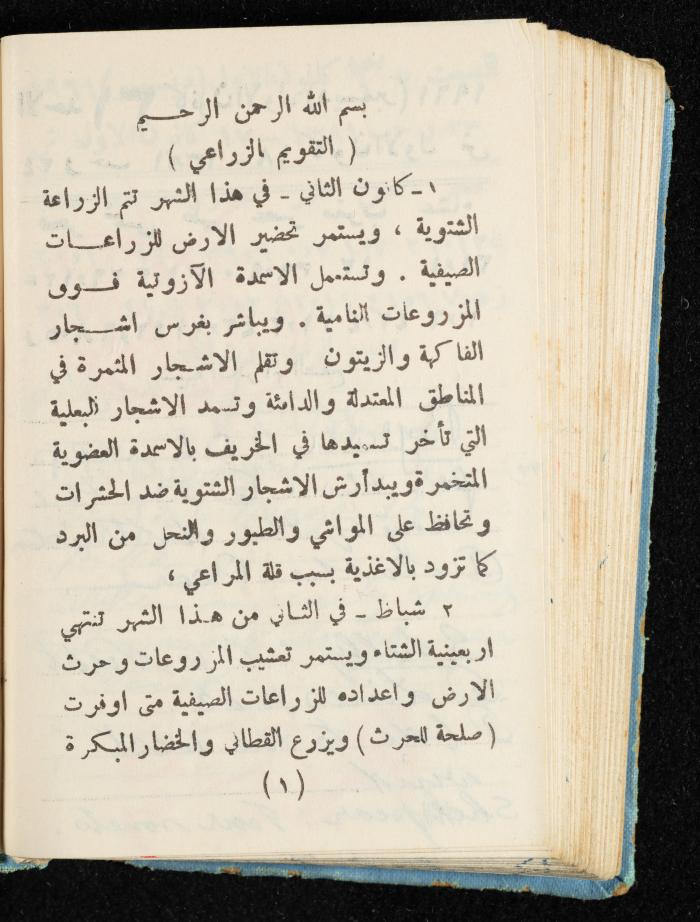 بسم الله الرحمن الرحيم
( التقويم الزراعي )
١ـ كانون الثاني ـ في هذا الشهر تتم الزراعة
الشتوية ، ويستمر تحضير الارض للزراعات
الصيفية . وتستعمل الاسمدة الآزوتية فوق
المزروعات النامية . ويباشر بغرس اشجار
الفاكهة والزيتون وتقلم الاشجار المثمرة في
المناطق المعتدلة والدافئة وتسمد الاشجار البعلية
التي تأخر تسميدها في الخريف بالاسمدة العضوية
المتخمرة ويبدأ رش الاشجار الشتوية ضد الحشرات
وتحافظ على المواشي والطيور والنحل من البرد
كما تزود بالاغذية بسبب قلة المراعي ،
٢ شباط ـ في الثاني من هذا الشهر تنتهي
اربعينية الشتاء ويستمر تعشيب المزروعات وحرث
الارض واعداده للزراعات الصيفية متى اوفرت
(صلحة للحرث) ويزرع القطاني والخضار المبكرة
(١)